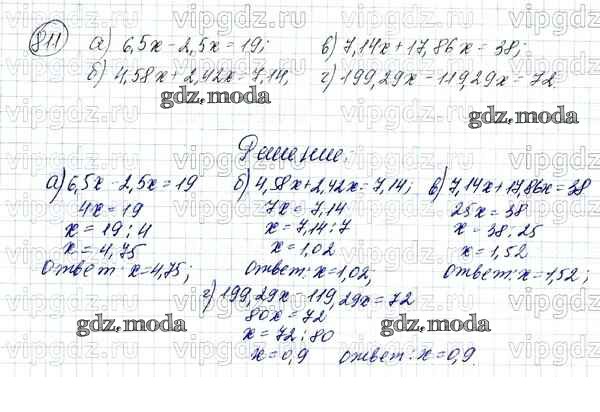 811 а) 6,5x - 2,5x = 19; в) 7,14x + 17,86x = 38;
б) 4,58x + 2,42x = 7,14; г) 199,29x - 119,29x = 72
gdz.moda
gdz.moda
Решение:
а) 6,5x - 2,5x = 19
4x = 19
x = 19 : 4
x = 4,75
ответ: x = 4,75;
б) 4,58x + 2,42x = 7,14;
7x = 7,14
x = 7,14 : 7
x = 1,02
ответ: x = 1,02,
в) 7,14x + 17,86x = 38
25x = 38
x = 38 : 25
x = 1,52
ответ: x = 1,52;
г) 199,29x - 119,29x = 72
80x = 72
x = 72 : 80
x = 0,9 ответ: x = 0,9.
gdz.moda
gdz.moda
vipgdz.ru